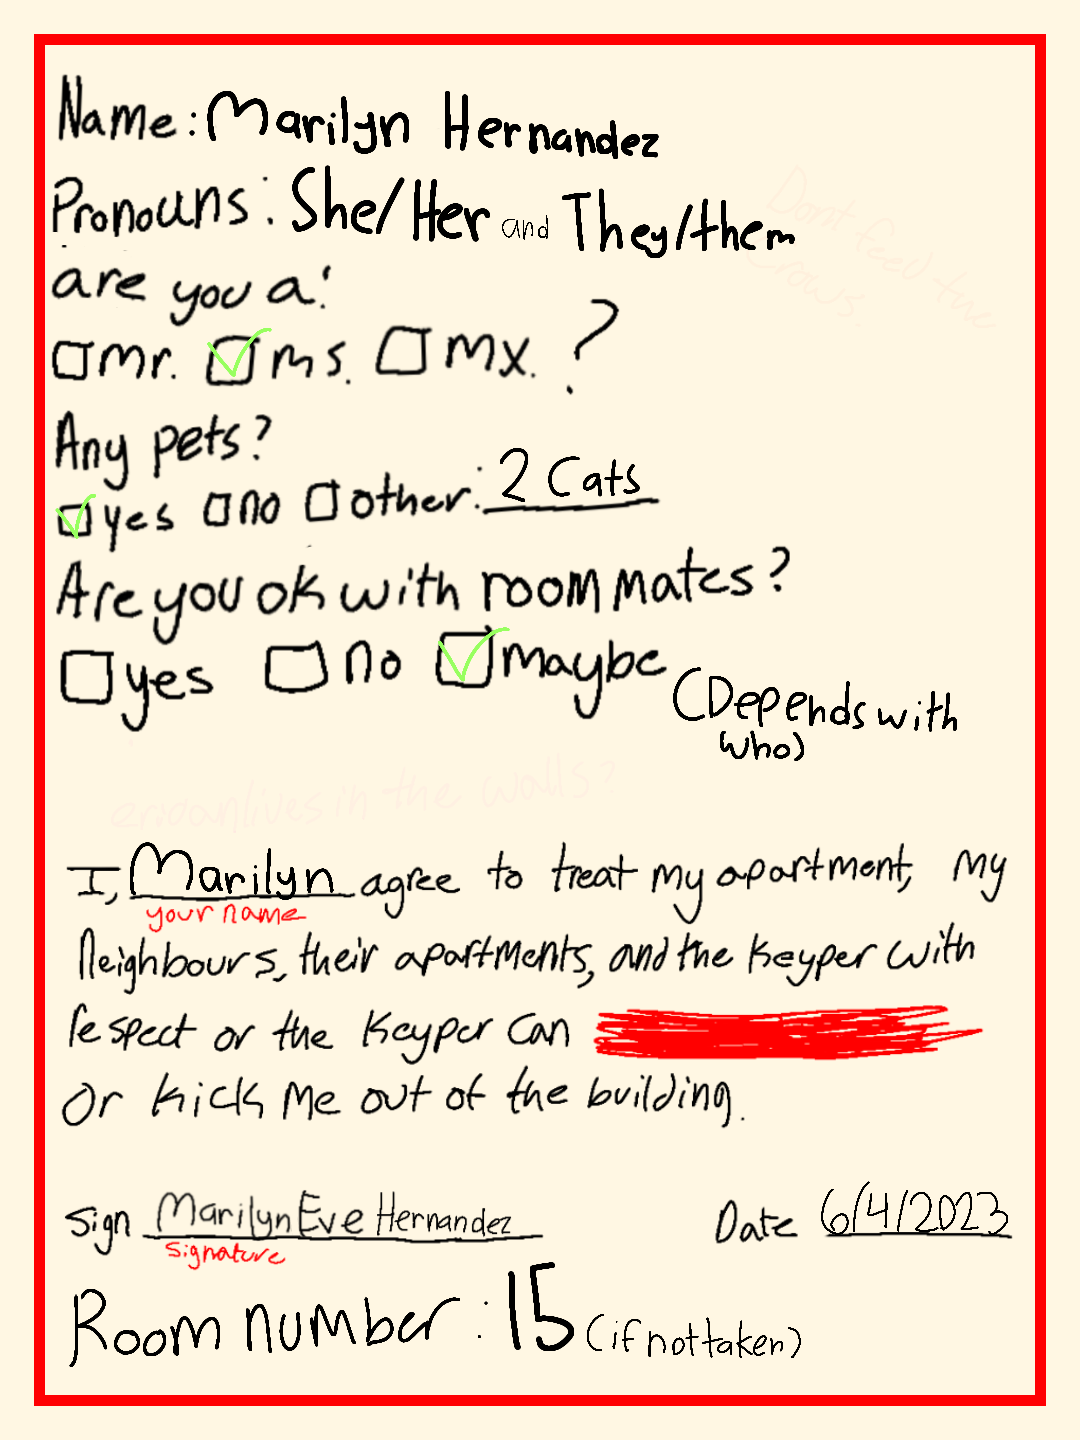 Name: Marilyn Hernandez
Pronouns: She/Her and They/them
Dont feed the
crows.
are you a:
mr. ms. mx. ?
Any pets?
yes no other: 2 Cats
Are you ok with roommates?
yes no maybe (Depends with
who)
lives in the walls?
I, Marilyn agree to treat my apartment, my
your name
Neighbours, their apartments, and the Keyper with
respect or the Keyper can
Or kick me out of the building.
Sign Marilyn Eve Hernandez Date 6/4/2023
signature
Room number: 15 (if not taken)